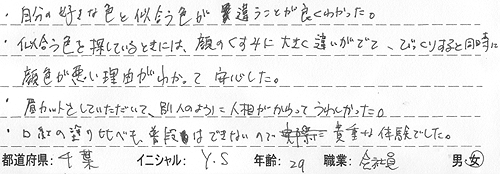 ・自分の好きな色と似合う色が違うことが良くわかった。
・似合う色を探しているときには、顔のくすみに大きく違いがでて、びっくりすると同時に
顔色が悪い理由がわかって安心した。
・眉カットをしていただいて、別人のように人相がかわってうれしかった。
・口紅の塗り比べも普段はできないので貴重な体験でした。
都道府県：千葉 イニシャル：Y.S 年齢：29 職業：会社員 男・女